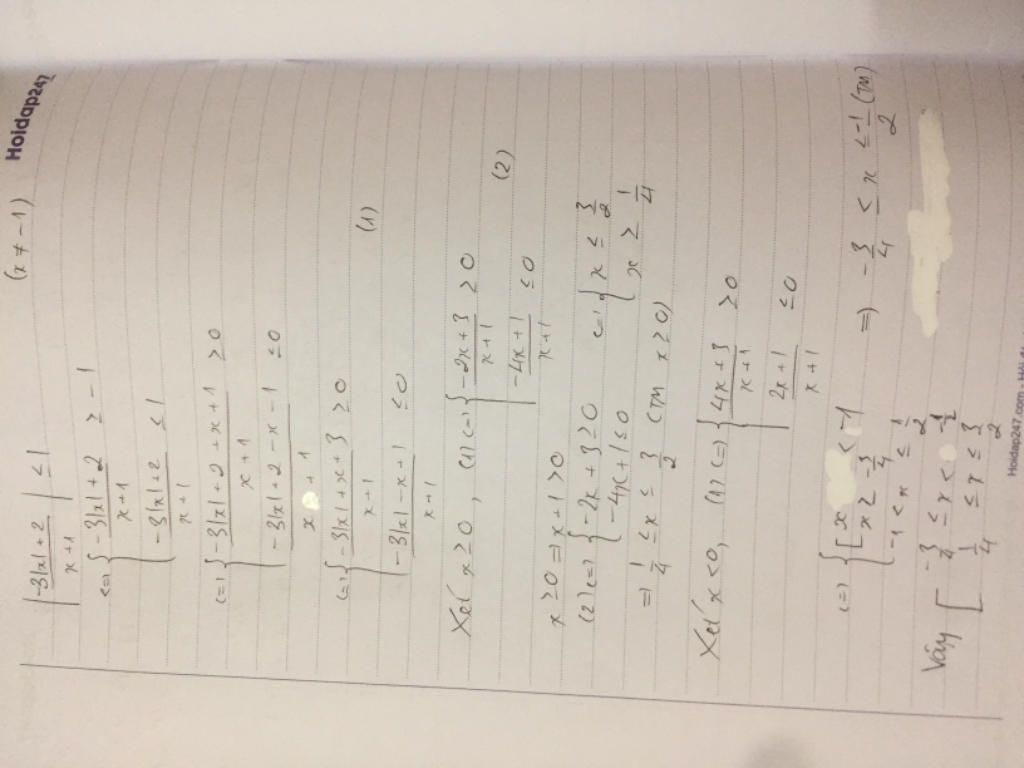 Hoidap247
| (-3|x|+2)/(x+1) | ≤ 1 (x ≠ -1)
<=> { (-3|x|+2)/(x+1) ≥ -1
(-3|x|+2)/(x+1) ≤ 1
<=> { (-3|x|+2+x+1)/(x+1) ≥ 0
(-3|x|+2-x-1)/(x+1) ≤ 0
<=> { (-3|x|+x+3)/(x+1) ≥ 0
(-3|x|-x+1)/(x+1) ≤ 0 (1)
Xét x ≥ 0, (1) <=> { (-2x+3)/(x+1) ≥ 0
(-4x+1)/(x+1) ≤ 0 (2)
x ≥ 0 => x+1 > 0
(2) <=> { -2x+3 ≥ 0 <=> { x ≤ 3/2
-4x+1 ≤ 0 x ≥ 1/4
=> 1/4 ≤ x ≤ 3/2 (TM x ≥ 0)
Xét x < 0, (1) <=> { (4x+3)/(x+1) ≥ 0
(2x+1)/(x+1) ≤ 0
<=> { [ x < -1
x ≥ -3/4 => -3/4 ≤ x ≤ -1/2 (TM)
-1 < x ≤ -1/2
Vây [ -3/4 ≤ x < -1/2
1/4 ≤ x ≤ 3/2
Hoidap247.com